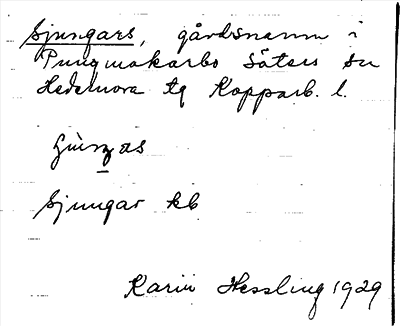 Sjungars, gårdsnamn i
Pungmakarbo Säters sn
Hedemora tg Kopparb. l.
Sjungar kb
Karin Hessling 1929